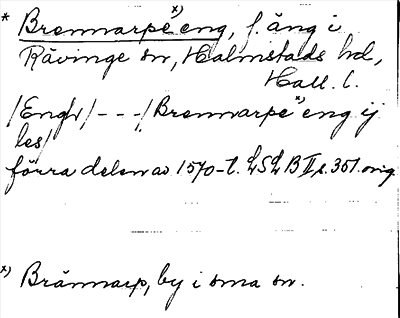 * Brennarpe x) eng, f. äng i
Rävinge sn, Halmstads hd,
Hall. l.
/Engh/ - - - /, Brennarpe x) eng ij
les/
förra delen av 1570-t. LSLB II s. 351. orig
x) Brännarp, by i sma sn.